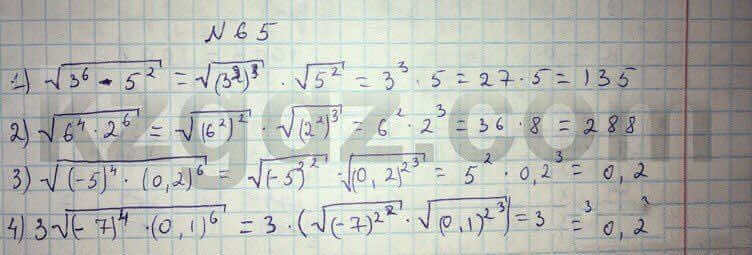 N 65
1) √(3⁶ - 5²) = √(3²)³ · √5² = 3³ · 5 = 27 · 5 = 135
2) √(6⁴ · 2⁶) = √(6²)² · √(2²)³ = 6² · 2³ = 36 · 8 = 288
3) √((-5)⁴ · (0,2)⁶) = √(-5)²² · √(0,2)²³ = 5² · 0,2³ = 0,2
4) 3√((-7)⁴ · (0,1)⁶) = 3 · (√(-7)²² · √(0,1)²³) = 3 =³ 0,2
kzgdz.com